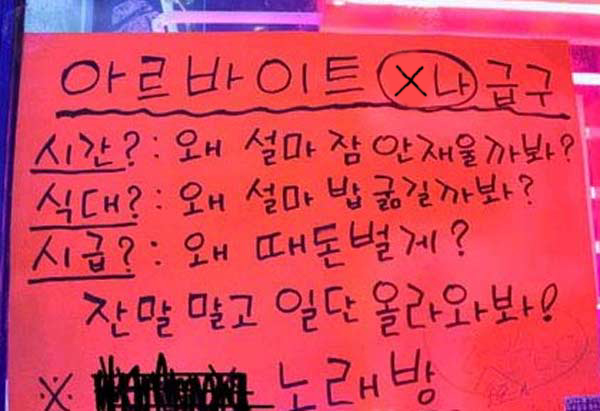 아르바이트 X나 급구
시간?: 왜 설마 잠 안재울까봐?
식대?: 왜 설마 밥 굶길까봐?
시급?: 왜 떼돈벌게?
잔말 말고 일단 올라와봐!
※ 노래방